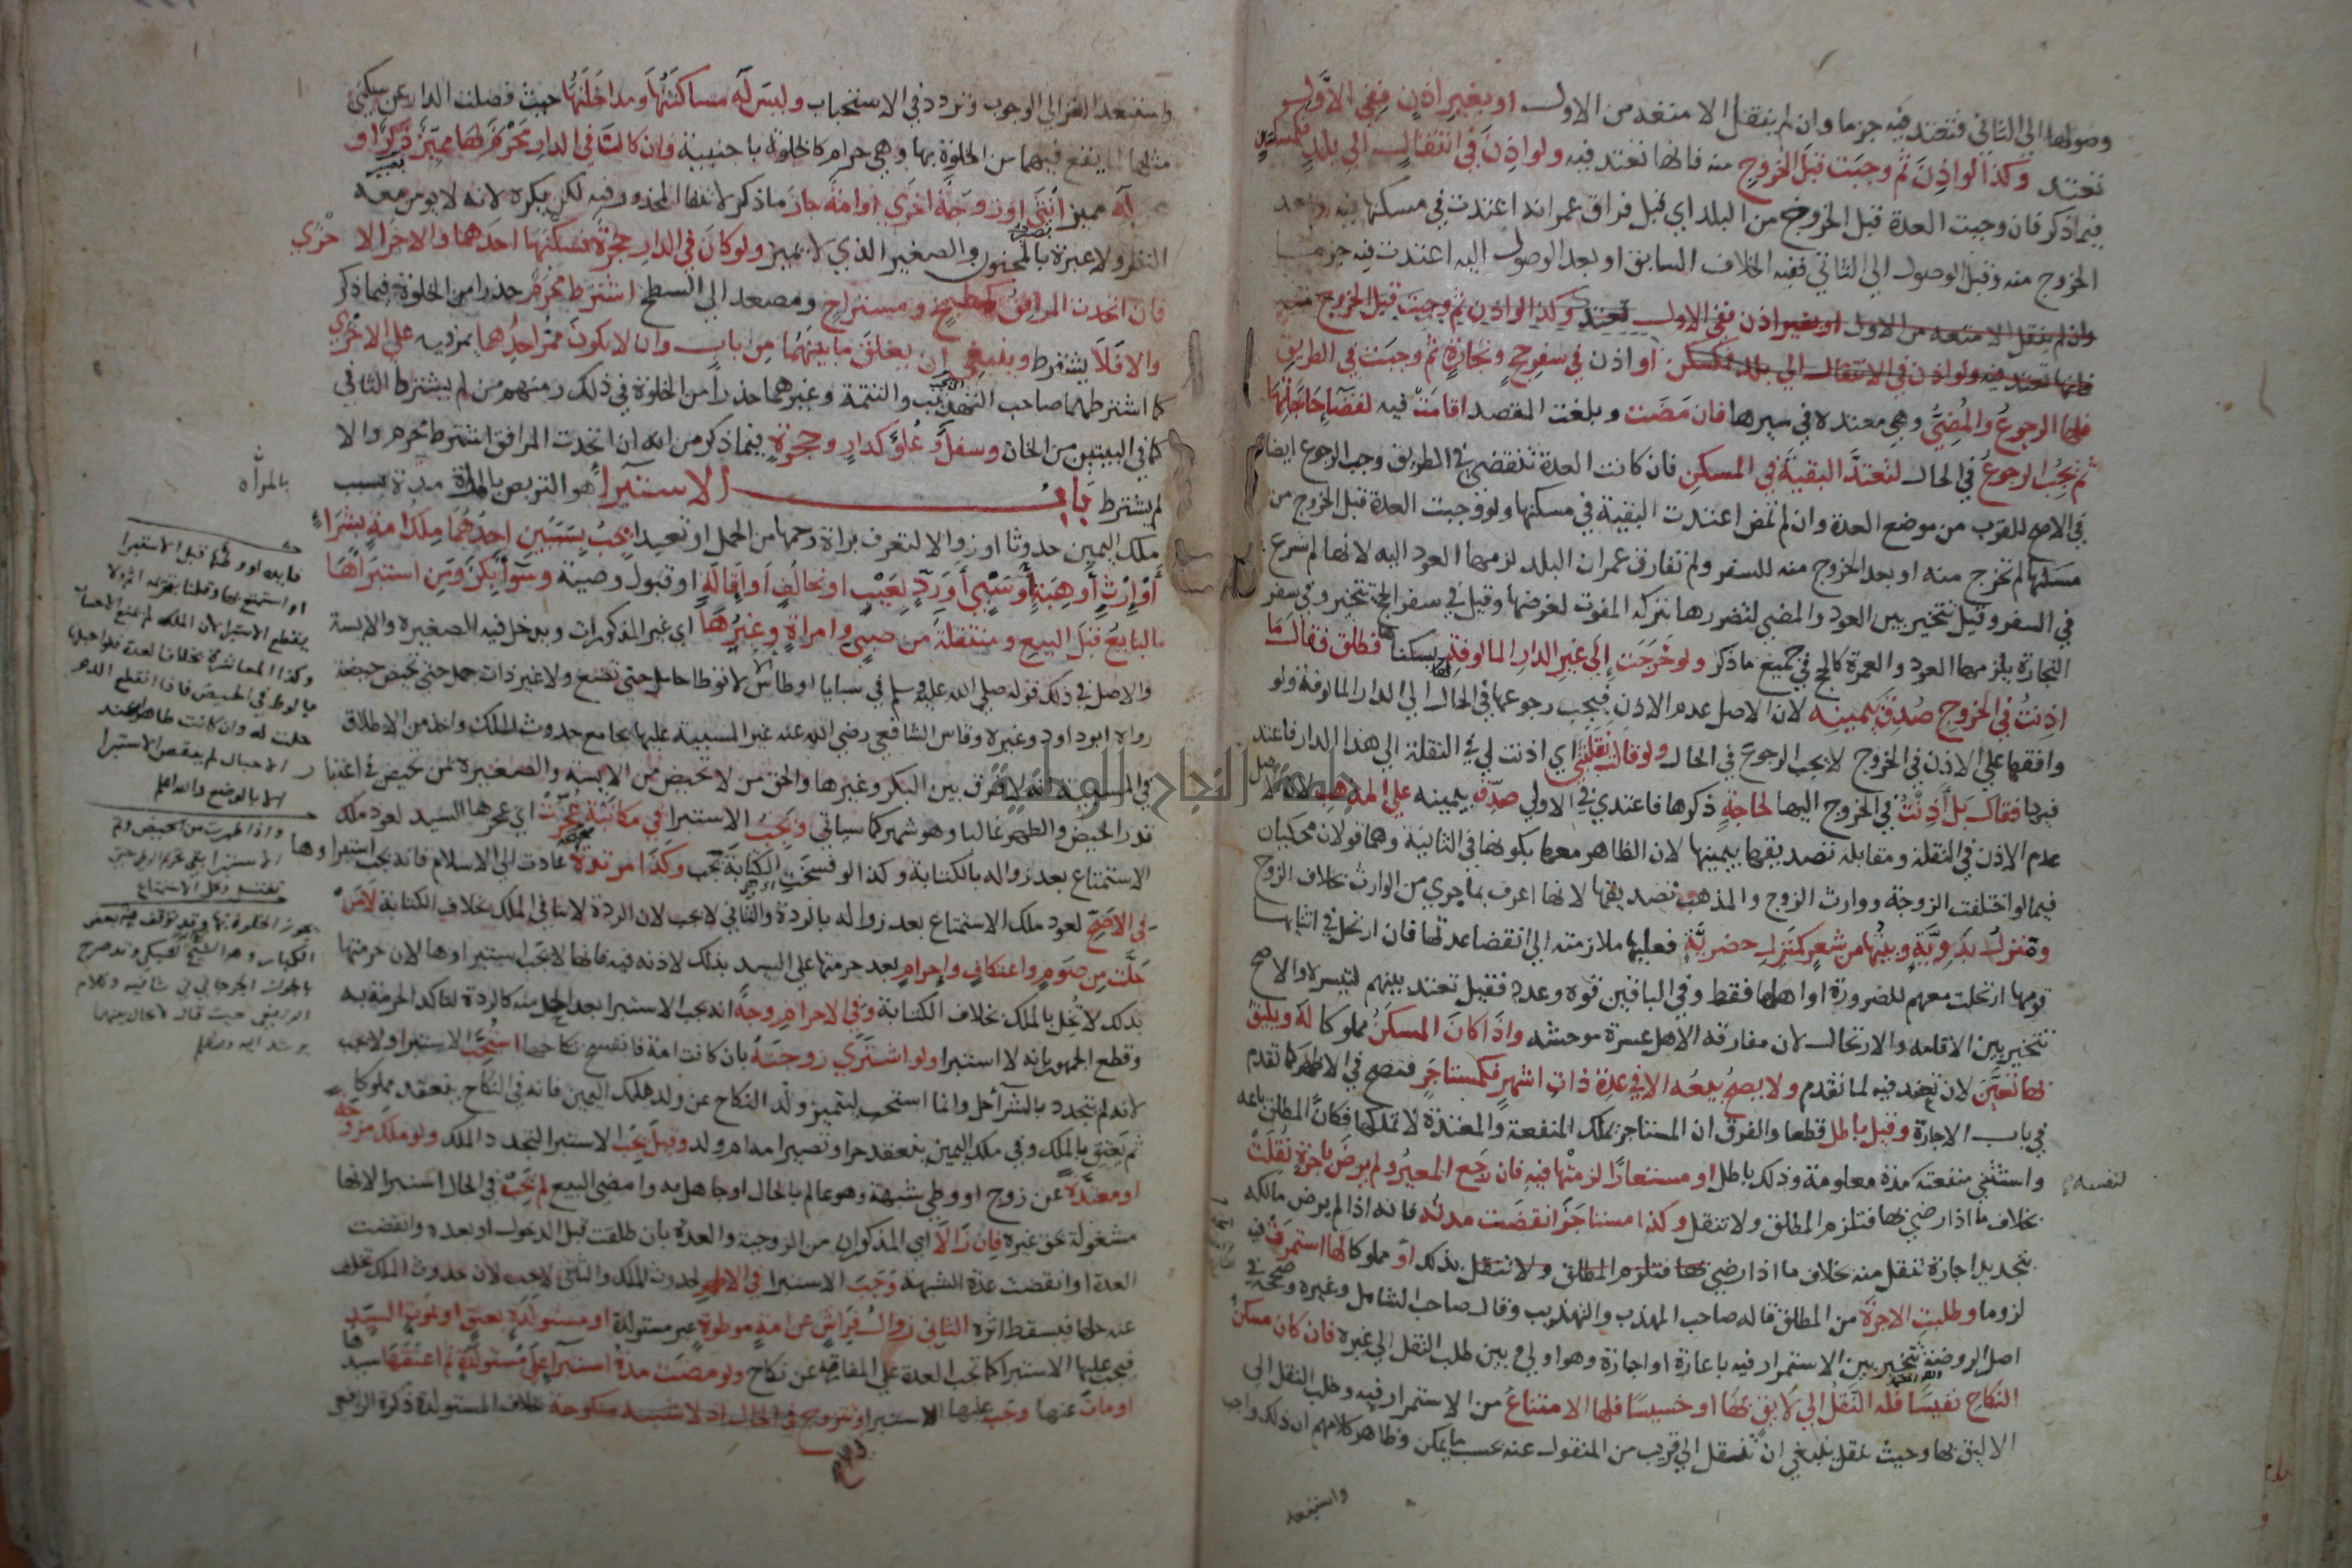 وصولها الي الثاني فتعتد فيه جزما وان لم ينتقل الامتعه من الاول او بغير اذن ففي الاول
تعتد وكذا لو اذن ثم وجبت قبل الخروج منه فانها تعتد فيه ولو اذن في انتقال الي بلد فكمسكن
فيما ذكر فان وجبت العدة قبل الخروج من البلد اي قبل فراق عمرانه اعتدت في مسكنها فيه او بعد
الخروج منه وقبل الوصول الي الثاني ففيه الخلاف السابق او بعد الوصول اليه اعتدت فيه جزما
وان لم ينتقل الامتعه من الاول او بغير اذن ففي الاول تعتد وكذا لو اذن ثم وجبت قبل الخروج منه
فانها تعتد فيه ولو اذن في الانتقال الي بلد فكمسكن او اذن في سفر حج وتجارة ثم وجبت في الطريق
فلها الرجوع والمضي وهي معتدة في سيرها فان مضت وبلغت المقصد اقامت فيه لقضا حاجتها
ثم يجب الرجوع في الحال لتعتد البقية في المسكن فان كانت العدة تنقضي في الطريق وجب الرجوع ايضا
في الاصح للقرب من موضع العدة وان لم تمض اعتدت البقية في مسكنها ولو وجبت العدة قبل الخروج من
مسكنها لم تخرج منه او بعد الخروج منه للسفر ولم تفارق عمران البلد لزمها العود اليه لانها لم تشرع
في السفر وقيل تتخير بين العود والمضي لتضررها بتركه المفوت لغرضها وقيل في سفر الحج تتخير وفي سفر
التجارة يلزمها العود والعمرة كالحج في جميع ما ذكر ولو خرجت إلي غير الدار المالوفة بسكناها فطلق فقال ما
اذنت في الخروج صدق بيمينه لان الاصل عدم الاذن فيجب رجوعها في الحال الي الدار المالوفة ولو
وافقها علي الاذن في الخروج لا يجب الرجوع في الحال ولو قالت نقلتني اي اذنت لي في النقلة الي هذا الدار فاعتد
فيها فقال بل أذنت في الخروج اليها لحاجة ذكرها فاعتدي في الاولي صدق بيمينه علي المذهب لان الاصل
عدم الاذن في النقلة ومقابله تصديقها بيمينها لان الظاهر معها بكونها في الثانية وهما قولان محكيان
فيما لو اختلفت الزوجة ووارث الزوج والمذهب تصديقها لانها اعرف بما جري من الوارث بخلاف الزوج
ومنزل بدوية وبيتها من شعر كمنزل حضرية فعليها ملازمته الي انقضا عدتها فان ارتحل في اثنايها
قومها ارتحلت معهم للضرورة او اهلها فقط وفي الباقين قوة وعدد فقيل تعتد بينهم لتيسره والاصح
تتخير بين الاقامه والارتحال لان مفارقة الاهل عسرة موحشه واذا كان المسكن مملوكا له ويليق
بها تعين لان تعتد فيه لما تقدم ولا يصح بيعه الا في عدة ذات اشهر فكمستاجر فتصح في الاظهر كما تقدم
في باب الاجارة وقيل باطل قطعا والفرق ان المستاجر يملك المنفعة والمعتدة لا تملكها فكان المطلق باعه
واستثني منفعته مدة معلومة وذلك باطل او مستعارا لزمتها فيه فان رجع المعير ولم يرض باجرة نقلت
لنفسه
بخلاف ما اذا رضي بها فتلزم المطلق ولا تنقل وكذا مستاجر انقضت مدته فانه اذا لم يرض مالكه
بتجديد اجارة تنقل منه بخلاف ما اذا رضي بها فتلزم المطلق ولا تنقل بذلك او مملوكا لها استمرت فيه
لزوما وطلبت الاجرة من المطلق قاله صاحب المهذب والتهذيب وقال صاحب الشامل وغيره وصححه في
اصل الروضة تتخير بين الاستمرار فيه باعارة او اجارة وهو اولي وبين طلب النقل الي غيره فان كان مسكن
النكاح نفيسا فله النقل الي لايق بها او خسيسا فلها الامتناع من الاستمرار فيه وطلب النقل الي
الاليق بها وحيث تنقل ينبغي ان تنتقل الي قريب من المنقول عنه بحسب ما يمكن وظاهر كلامهم ان ذلك واجب
واستبعد
واستبعد الغزالي الوجوب وتردد في الاستحباب وليس له مساكنتها ومداخلتها حيث فضلت الدار عن سكني
مثلها لما يقع فيهما من الخلوة بها وهي حرام كالخلوة باجنبية وان كان في الدار محرم لها مميز ذكر او
له مميز أنثي او زوجة اخري او امة جاز ما ذكر لانتفا المحذور فيه لكن يكره لانه لا يومن معه
النظر ولا عبرة بالمجنون والصغير الذي لا يميز ولو كان في الدار حجرة فسكنها احدهما والاخر الاخري
فان اتحدت المرافق كمطبخ ومستراح ومصعد الي السطح اشترط محرم حذرا من الخلوة فيما ذكر
والا فلا يشترط وينبغي ان يغلق ما بينهما من باب وان لا يكون ممر احدهما يمر فيه علي الاخري
كما اشترطهما صاحب التهذيب والتتمة وغيرهما حذرا من الخلوة في ذلك ومنهم من لم يشترط الثاني
كما في البيتين من الخان وسفل وعلو كدار وحجرة فيما ذكر من انه ان اتحدت المرافق اشترط محرم والا
لم يشترط باب الاستبرا هو التربص بالمراة مدة بسبب
ملك اليمين حدوثا او زوالا لتعرف براة رحمها من الحمل او تعبدا يجب بسببين احدهما ملك امة بشراء
أو إرث أو هبة أو سبي أو رد لعيب او تحالف او إقالة او قبول وصية وسوا بكر ومن استبراها
البايع قبل البيع ومنتقلة من صبي وامراة وغيرها اي غير المذكورات ويدخل فيه الصغيرة والايسة
والاصل في ذلك قوله صلي الله عليه وسلم في سبايا اوطاس لا توطا حامل حتي تضع ولا غير ذات حمل حتي تحيض حيضة
رواه ابو داود وغيره وقاس الشافعي رضي الله عنه غير المسبية عليها بجامع حدوث الملك واخذ من الاطلاق
في المسبية انه لا فرق بين البكر وغيرها والحق من لا تحيض من الايسة والصغيرة بمن تحيض في اعتبار
قدر الحيض والطهر غالبا وهو شهر كما سياتي ويجب الاستبرا في مكاتبة عجزت اي عجزها السيد لعود ملك
الاستمتاع بعد زواله بالكتابة وكذا لو فسخت الكتابة تجب وكذا مرتدة عادت الي الاسلام فانه يجب استبراوها
في الاصح لعود ملك الاستمتاع بعد زواله بالردة والثاني لا يجب لان الردة لا تنافي الملك بخلاف الكتابة لا من
حلت من صوم واعتكاف وإحرام بعد حرمتها علي السيد بذلك لاذنه فيه فانها لا يجب استبراوها لان حرمتها
بذلك لا تخل بالملك بخلاف الكتابة وفي الاحرام وجه انه يجب الاستبرا بعد الحل منه كالردة لتاكد الحرمة به
وقطع الجمهور بانه لا استبرا ولو اشتري زوجته بان كانت امة فانفسخ نكاحها استحب الاستبرا ولا يجب
لانه لم يتجدد بالشرا حل وانما استحب ليتميز ولد النكاح عن ولد ملك اليمين فانه في النكاح ينعقد مملوكا
ثم يعتق بالملك وفي ملك اليمين ينعقد حرا وتصير امه ام ولد وقيل يجب الاستبرا لتجدد الملك ولو ملك مزوجة
او معتدة عن زوج او وطي شبهة وهو عالم بالحال او جاهل به وامضي البيع لم يجب في الحال استبرا لانها
مشغولة بحق غيره فان زالا اي المذكوران من الزوجية والعدة بان طلقت قبل الدخول او بعده وانقضت
العدة او انقضت عدة الشبهة وجب الاستبرا في الاظهر لحدوث الملك والثاني لا يجب لان حدوث الملك تخلف
عنه حلها فيسقط اثره الثاني زوال فراش عن امة موطوة غير مستولدة او مستولدة بعتق او موت السيد
فيجب عليها الاستبرا كما تجب العدة علي المفارقة عن نكاح ولو مضت مدة استبرا علي مستولدة ثم اعتقها سيدها
او مات عنها وجب عليها الاستبرا ولا تتزوج في الحال اذ لا تشبه منكوحة بخلاف المستولدة ذكره الرافعي
بالمراة
فايده لو وطيها قبل الاستبرا
او استمتع بها وقلنا بتحريمه اثم ولا
ينقطع الاستبرا لان الملك لم يمنع الاحتساب
وكذا المعاشرة بخلاف العدة فلو احبلها
بالوطء في الحيض فاذا انقطع الدم
حلت له وان كانت طاهرا عند
الاحبال لم ينقض الاستبرا
الا بالوضع والله اعلم
واذا طهرت من الحيض وتم
الاستبرا بقي تحريم الوطي حتي
تغتسل وحل الاستمتاع